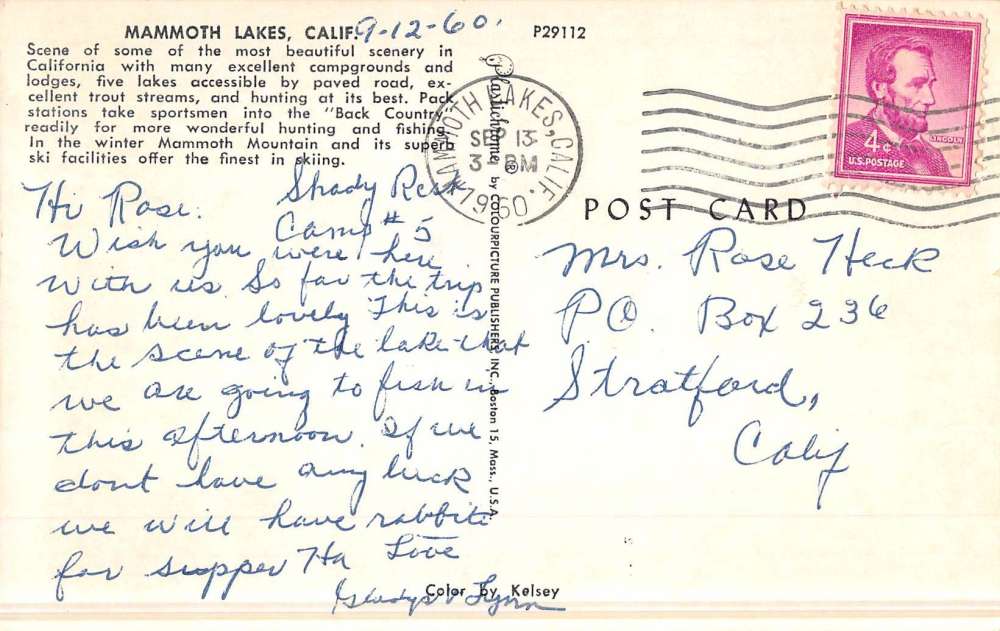 MAMMOTH LAKES, CALIF.
9-12-60.
P29112
Scene of some of the most beautiful scenery in
California with many excellent campgrounds and
lodges, five lakes accessible by paved road, ex-
cellent trout streams, and hunting at its best. Pack
stations take sportsmen into the "Back Country"
readily for more wonderful hunting and fishing.
In the winter Mammoth Mountain and its superb
ski facilities offer the finest in skiing.
Shady Rest
Camp #5
Hi Rose.
Wish you were here
with us So far the trip
has been lovely This is
the scene of the lake that
we are going to fish in
this afternoon. If we
dont have any luck
we will have rabbit
for supper Ha Love
Gladys & Lynn
Color by Kelsey
Plastichrome ® by COLOURPICTURE PUBLISHERS, INC., Boston 15, Mass., U.S.A.
MAMMOTH LAKES, CALIF.
SEP 13
3 PM
1960
4¢
LINCOLN
U.S. POSTAGE
POST CARD
Mrs. Rose Heck
P.O. Box 236
Stratford,
Calif